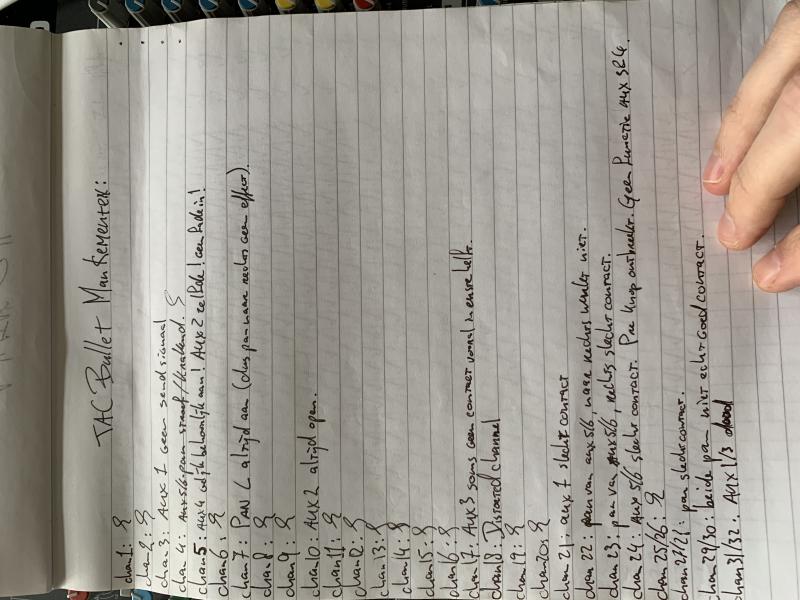 TAC Bullet Mankementen:
chan 1:
chan 2:
chan 3: Aux 1 geen send signaal
chan 4: Aux 5/6 pan stroef/krakend.
chan 5: Aux 4 altijd behoorlijk aan! Aux 2 zelfde! aan fade in!
chan 6:
chan 7: PAN L altijd aan (dus pan naar rechts geen effect).
chan 8:
chan 9:
chan 10: Aux 2 altijd open.
chan 11:
chan 12:
chan 13:
chan 14:
chan 15:
chan 16:
chan 17: Aux 3 soms geen contact vooral 1e helft.
chan 18: Distorted channel
chan 19:
chan 20:
chan 21: aux 1 slecht contact
chan 22: pan van aux 5/6, naar rechts werkt niet.
chan 23: pan van aux 5/6, rechts slecht contact.
chan 24: Aux 5/6 slecht contact. Pre knop ontbreekt. Geen functie Aux 3&4.
chan 25/26:
chan 27/21: pan slecht contact.
chan 29/30: beide pan niet echt goed contact.
chan 31/32: Aux 1/3 dood